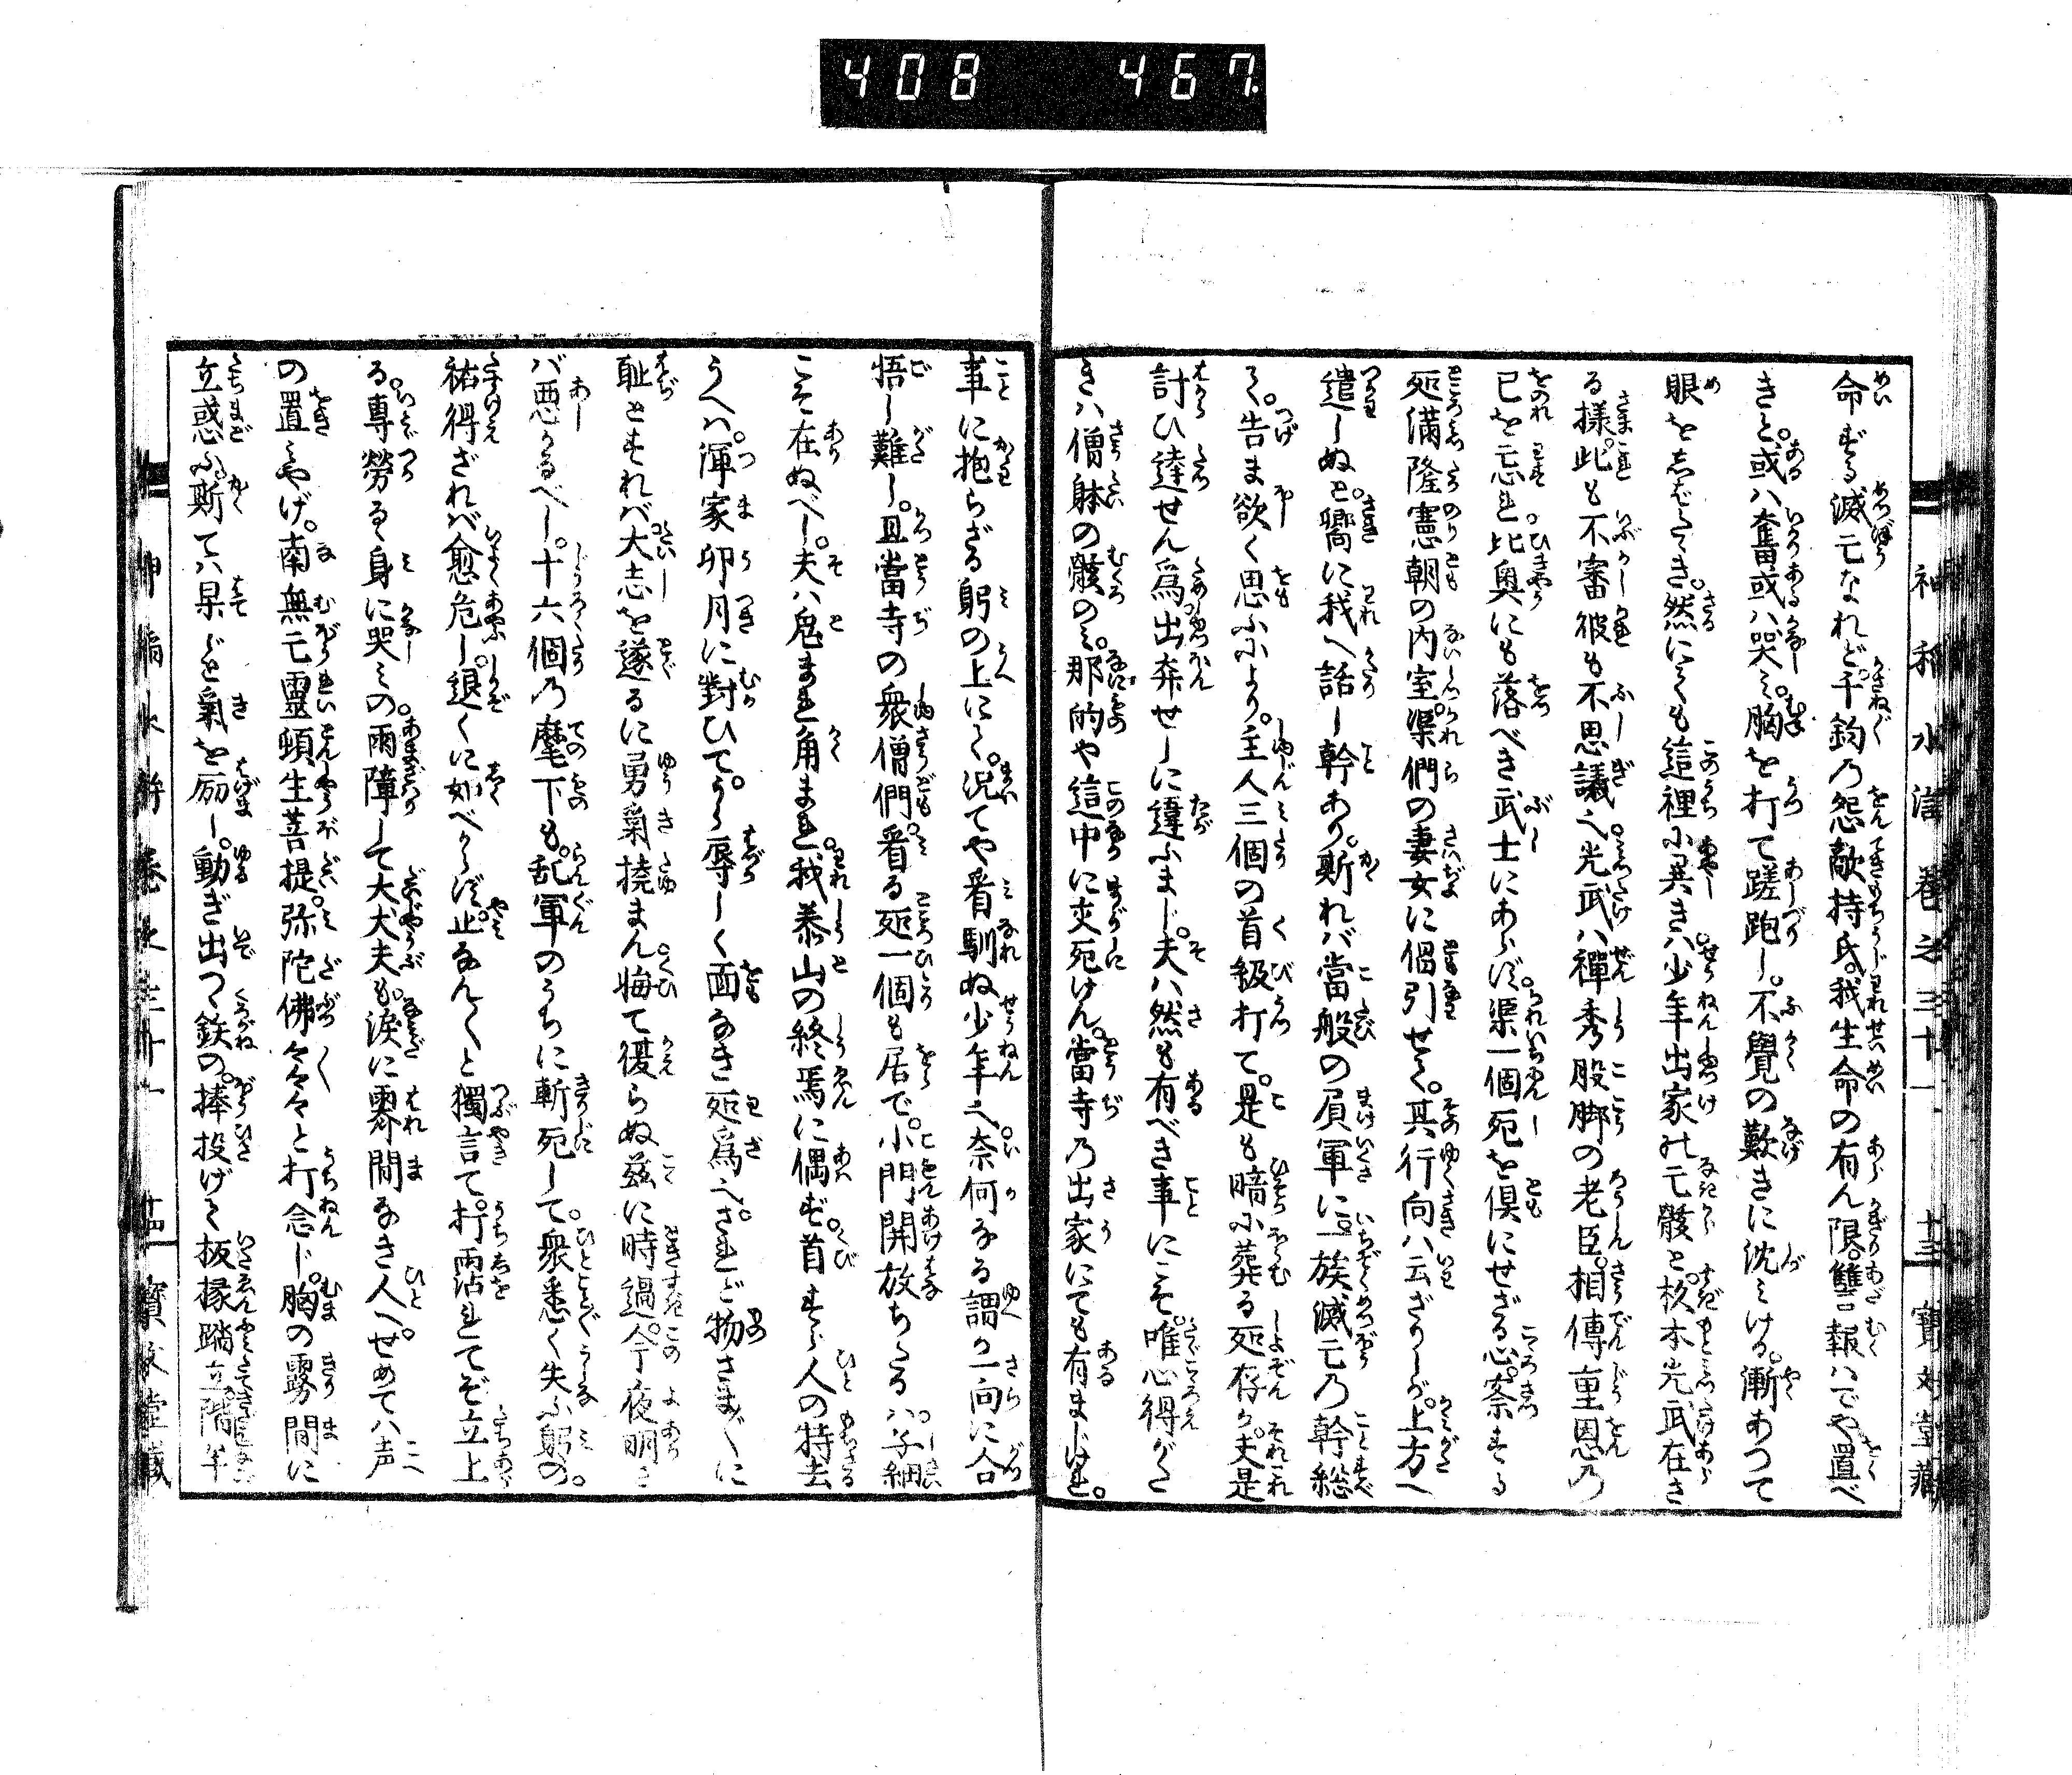 408 467
命ずる滅亡なれど。千鈞の怨敵持氏。我生命の有ん限。讐報はでや置べ
きと。或ハ奮或ハ哭ミ。胸を打て蹉跑し。不覺の歎きに沈ミける。漸あつて
眼をしばたゝき。然にても這裡に異きハ少年出家の亡骸と。松本光武在さ
る様。此も不審彼も不思議也。光武ハ禅秀股脚の老臣。相傳重恩の
已を忘れ比奥にも落べき武士にあらず。渠一個死を倶にせざる。忩察する
処満隆憲朝の内室。渠們の妻女に倡引せて。其行向ハ云ざりしが。上方へ
遣しぬと。嚮に我へ話し幹あり。斯れバ當般の屓軍に。一族滅亡の幹総
て。告ま欲く思ふにより。主人三個の首級打て。是も暗に葬る処存か。夫是
計ひ達せん為。出奔せしに違ふまじ。夫ハ然も有べき事にこそ。唯心得が た
きハ僧躰の骸のミ。那的や這中に交死けん。當寺の出家にても有まじけれ。
袖稲水滸 巻之三十一 十三 寶文堂藏
事に抱らざる躬の上にて。况てや看馴ぬ少年也。奈何なる謂か一向に合
悟し難し。且當寺の衆僧們。看る処一個も居で。小門開放ちたるハ。子細
こそ在ぬべし。夫ハ兎まれ角まれ。我泰山の終焉に偶ず。首すら人の持去
うへハ。渾家卯月に對ひて。うら辱しく面なき処為也。されど物さまざまに
耻とすれバ。大志を遂るに勇氣撓まん。悔て復らぬ茲に時過。今夜明さ
バ悪かるべし。十六個の麾下も。乱軍のうちに斬死して。衆悉く失ふ躬の。
祐得ざれバ愈危し。退くに如べからず。止なんなんと獨言て。打沾れてぞ立上
る。専勞るゝ身に哭ミの。雨障して大丈夫も。涙に霽間なき人へ。せめてハ声
の置ミやげ。南無亡靈頓生菩提。弥陀佛々々々と打念じ。胸の霧間に
立惑ふ。斯てハ果じと氣を励し。動ぎ出つゝ鉄の。捧投げて扳掾蹈立。階半
十四 寶文堂藏